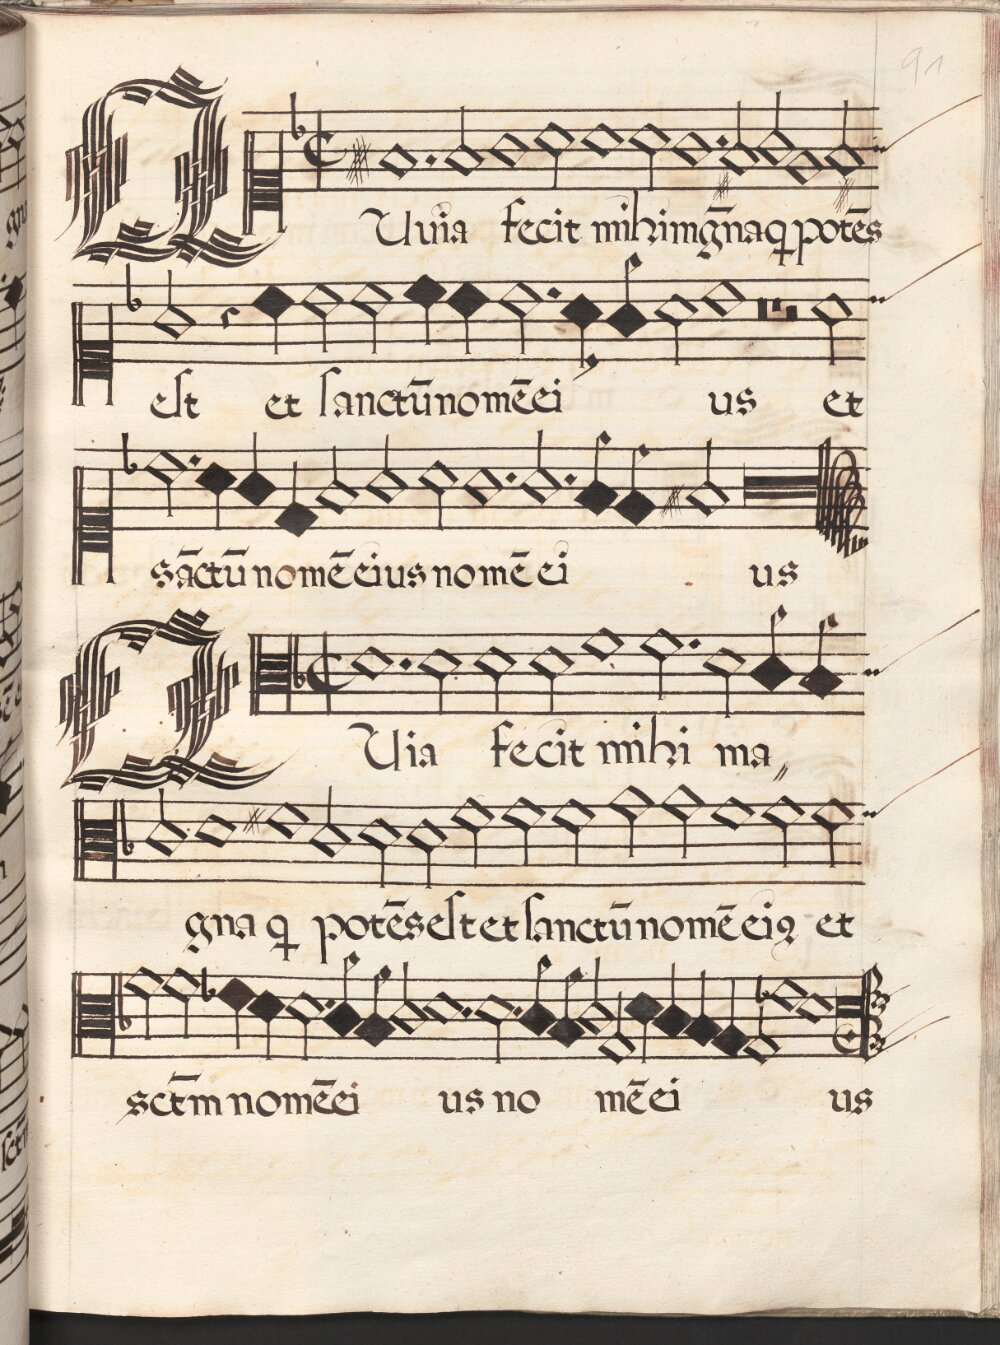 91
QUuia fecit mihi mḡna qꝫ potēs
est et sanctū nomē ei us et
sāctū nomē eius nomē ei us
QUia fecit mihi ma〃
gna qꝫ potēs est et sanctū nomē eiꝰ et
sct̄m nomē ei us no mē ei us